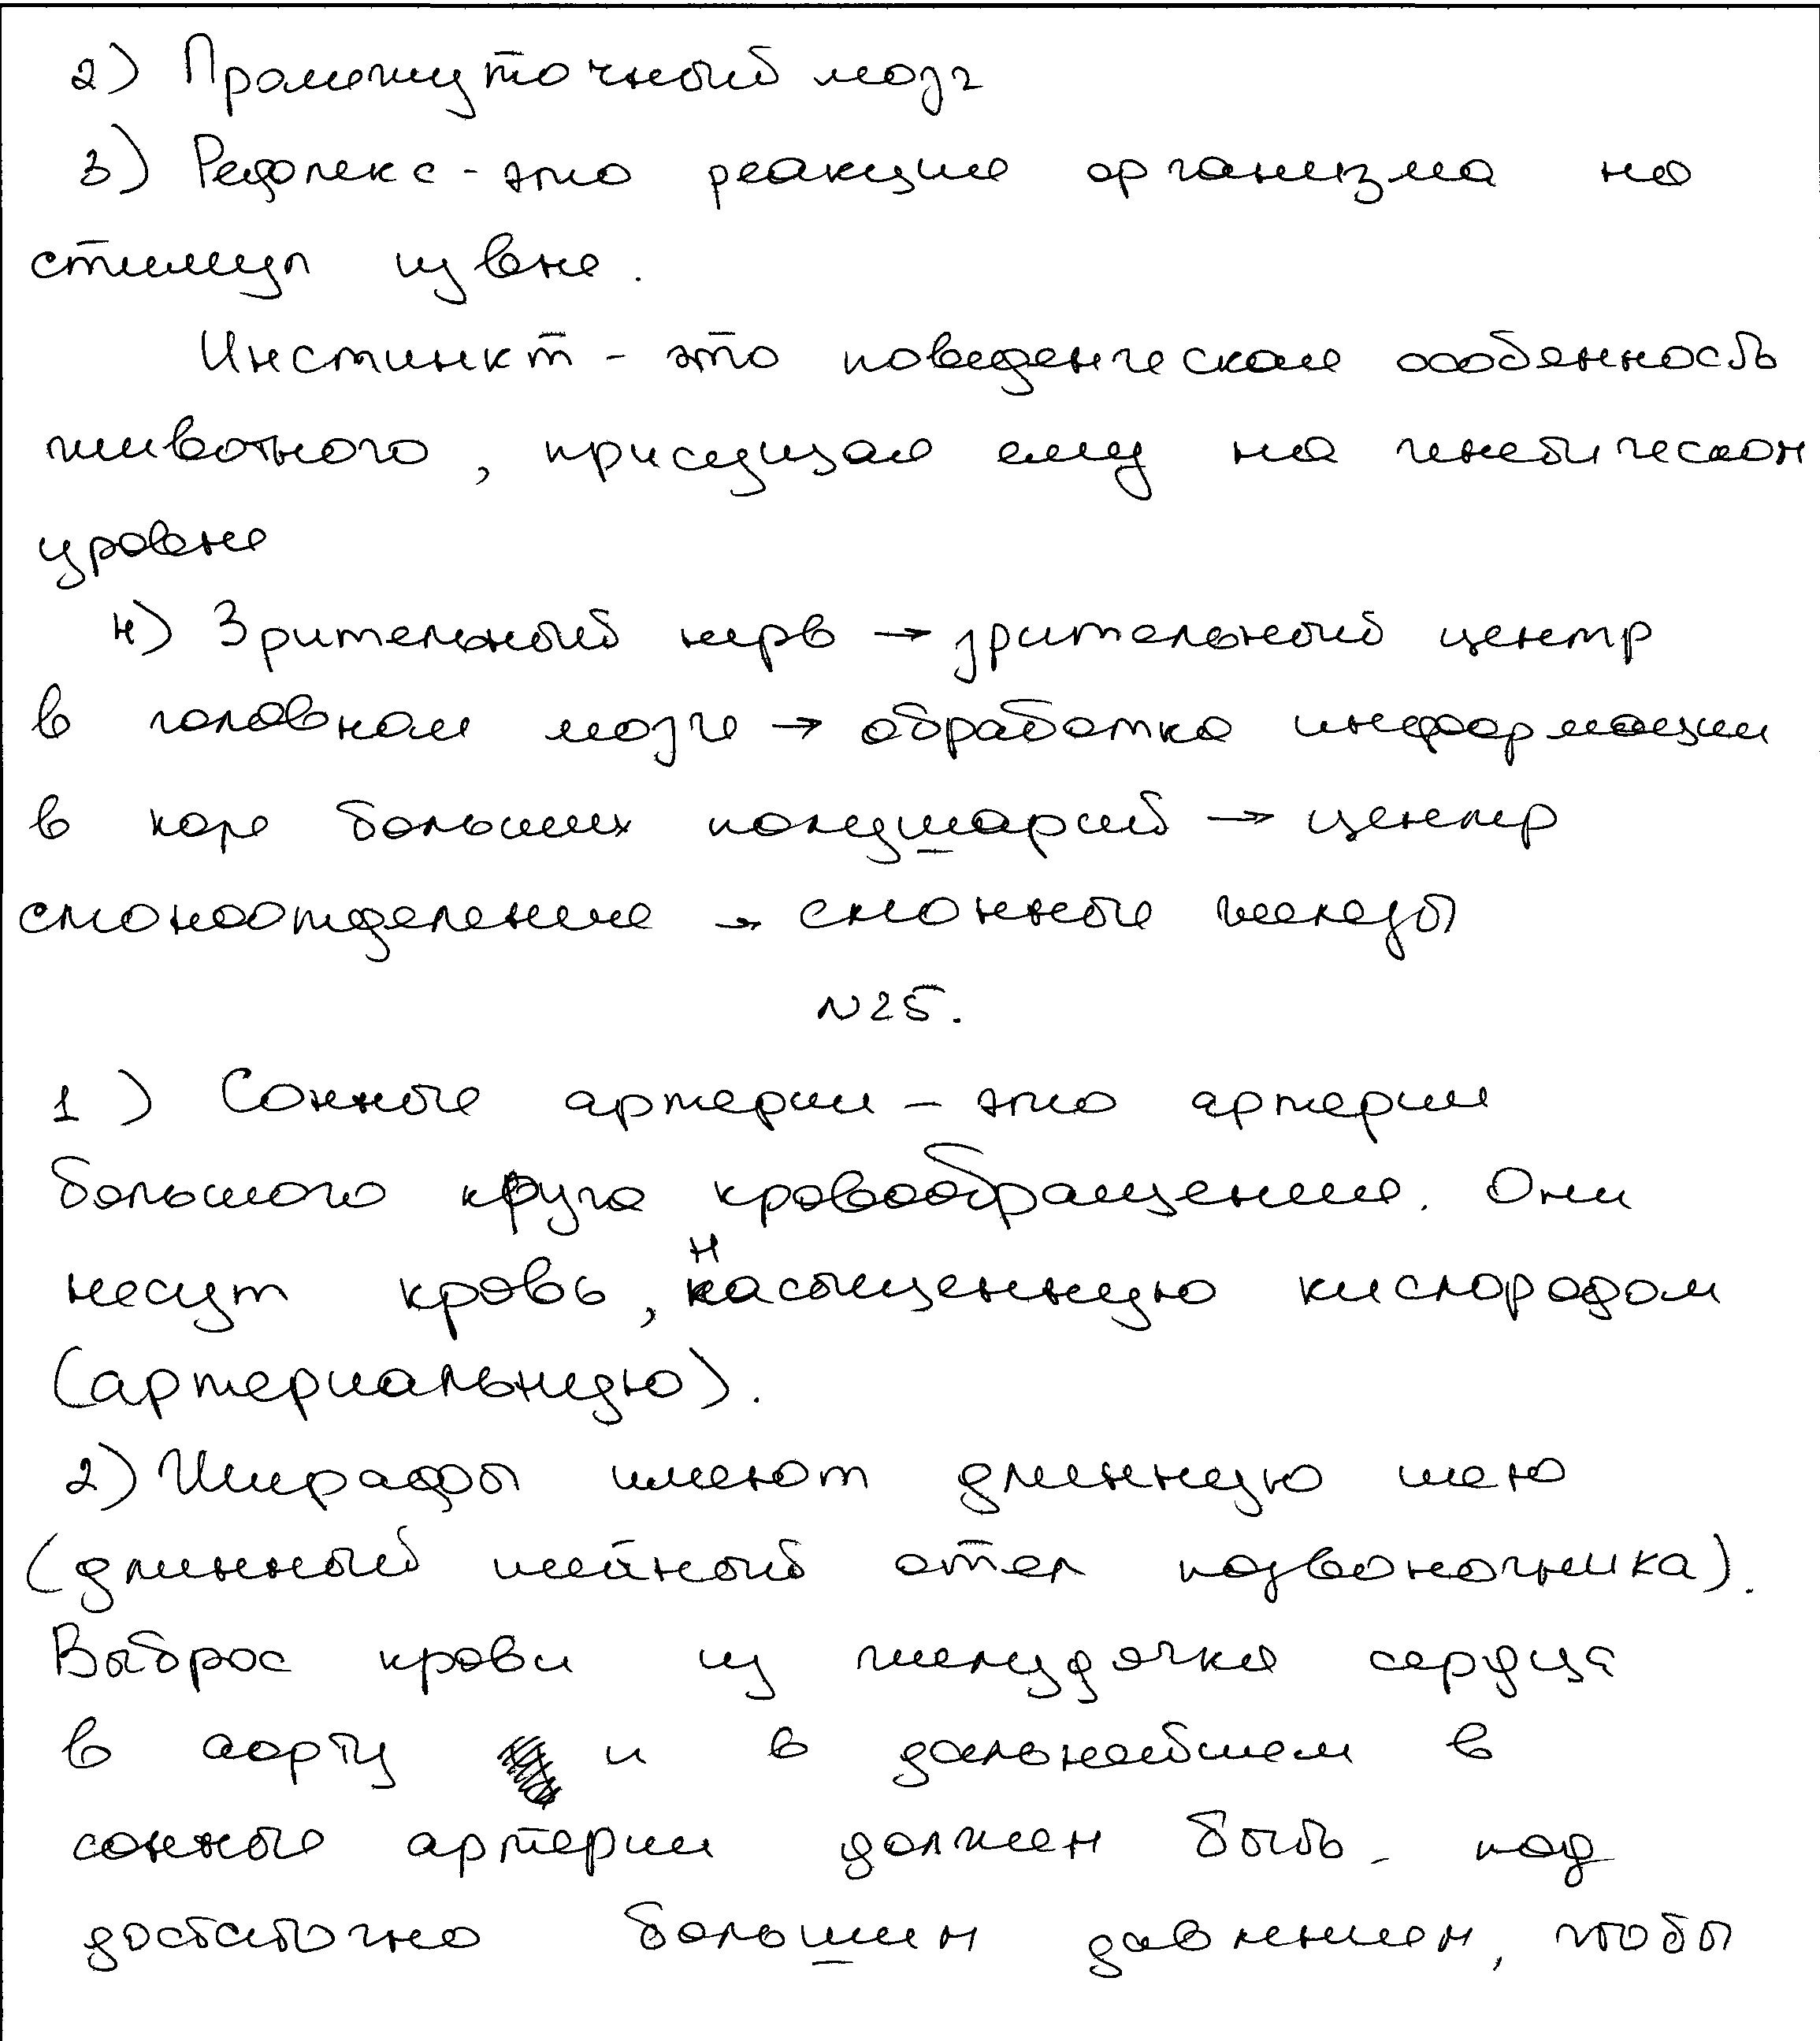 2) Промежуточный мозг
3) Рефлекс - это реакция организма на
стимул извне.
Инстинкт - это поведенческая особенность
животного, присущая ему на генетическом
уровне
4) Зрительный нерв → зрительный центр
в головном мозге → обработка информации
в коре больших полушарий → центр
слюноотделения → слюнные железы
N25.
1) Сонные артерии - это артерии
большого круга кровообращения. Они
несут кровь, насыщенную кислородом
(артериальную).
2) Жирафы имеют длинную шею
(длинный шейный отел позвоночника).
Выброс крови из желудочка сердца
в аорту и в дальнейшем в
сонные артерии должен быть под
достаточно большим давлением, чтобы